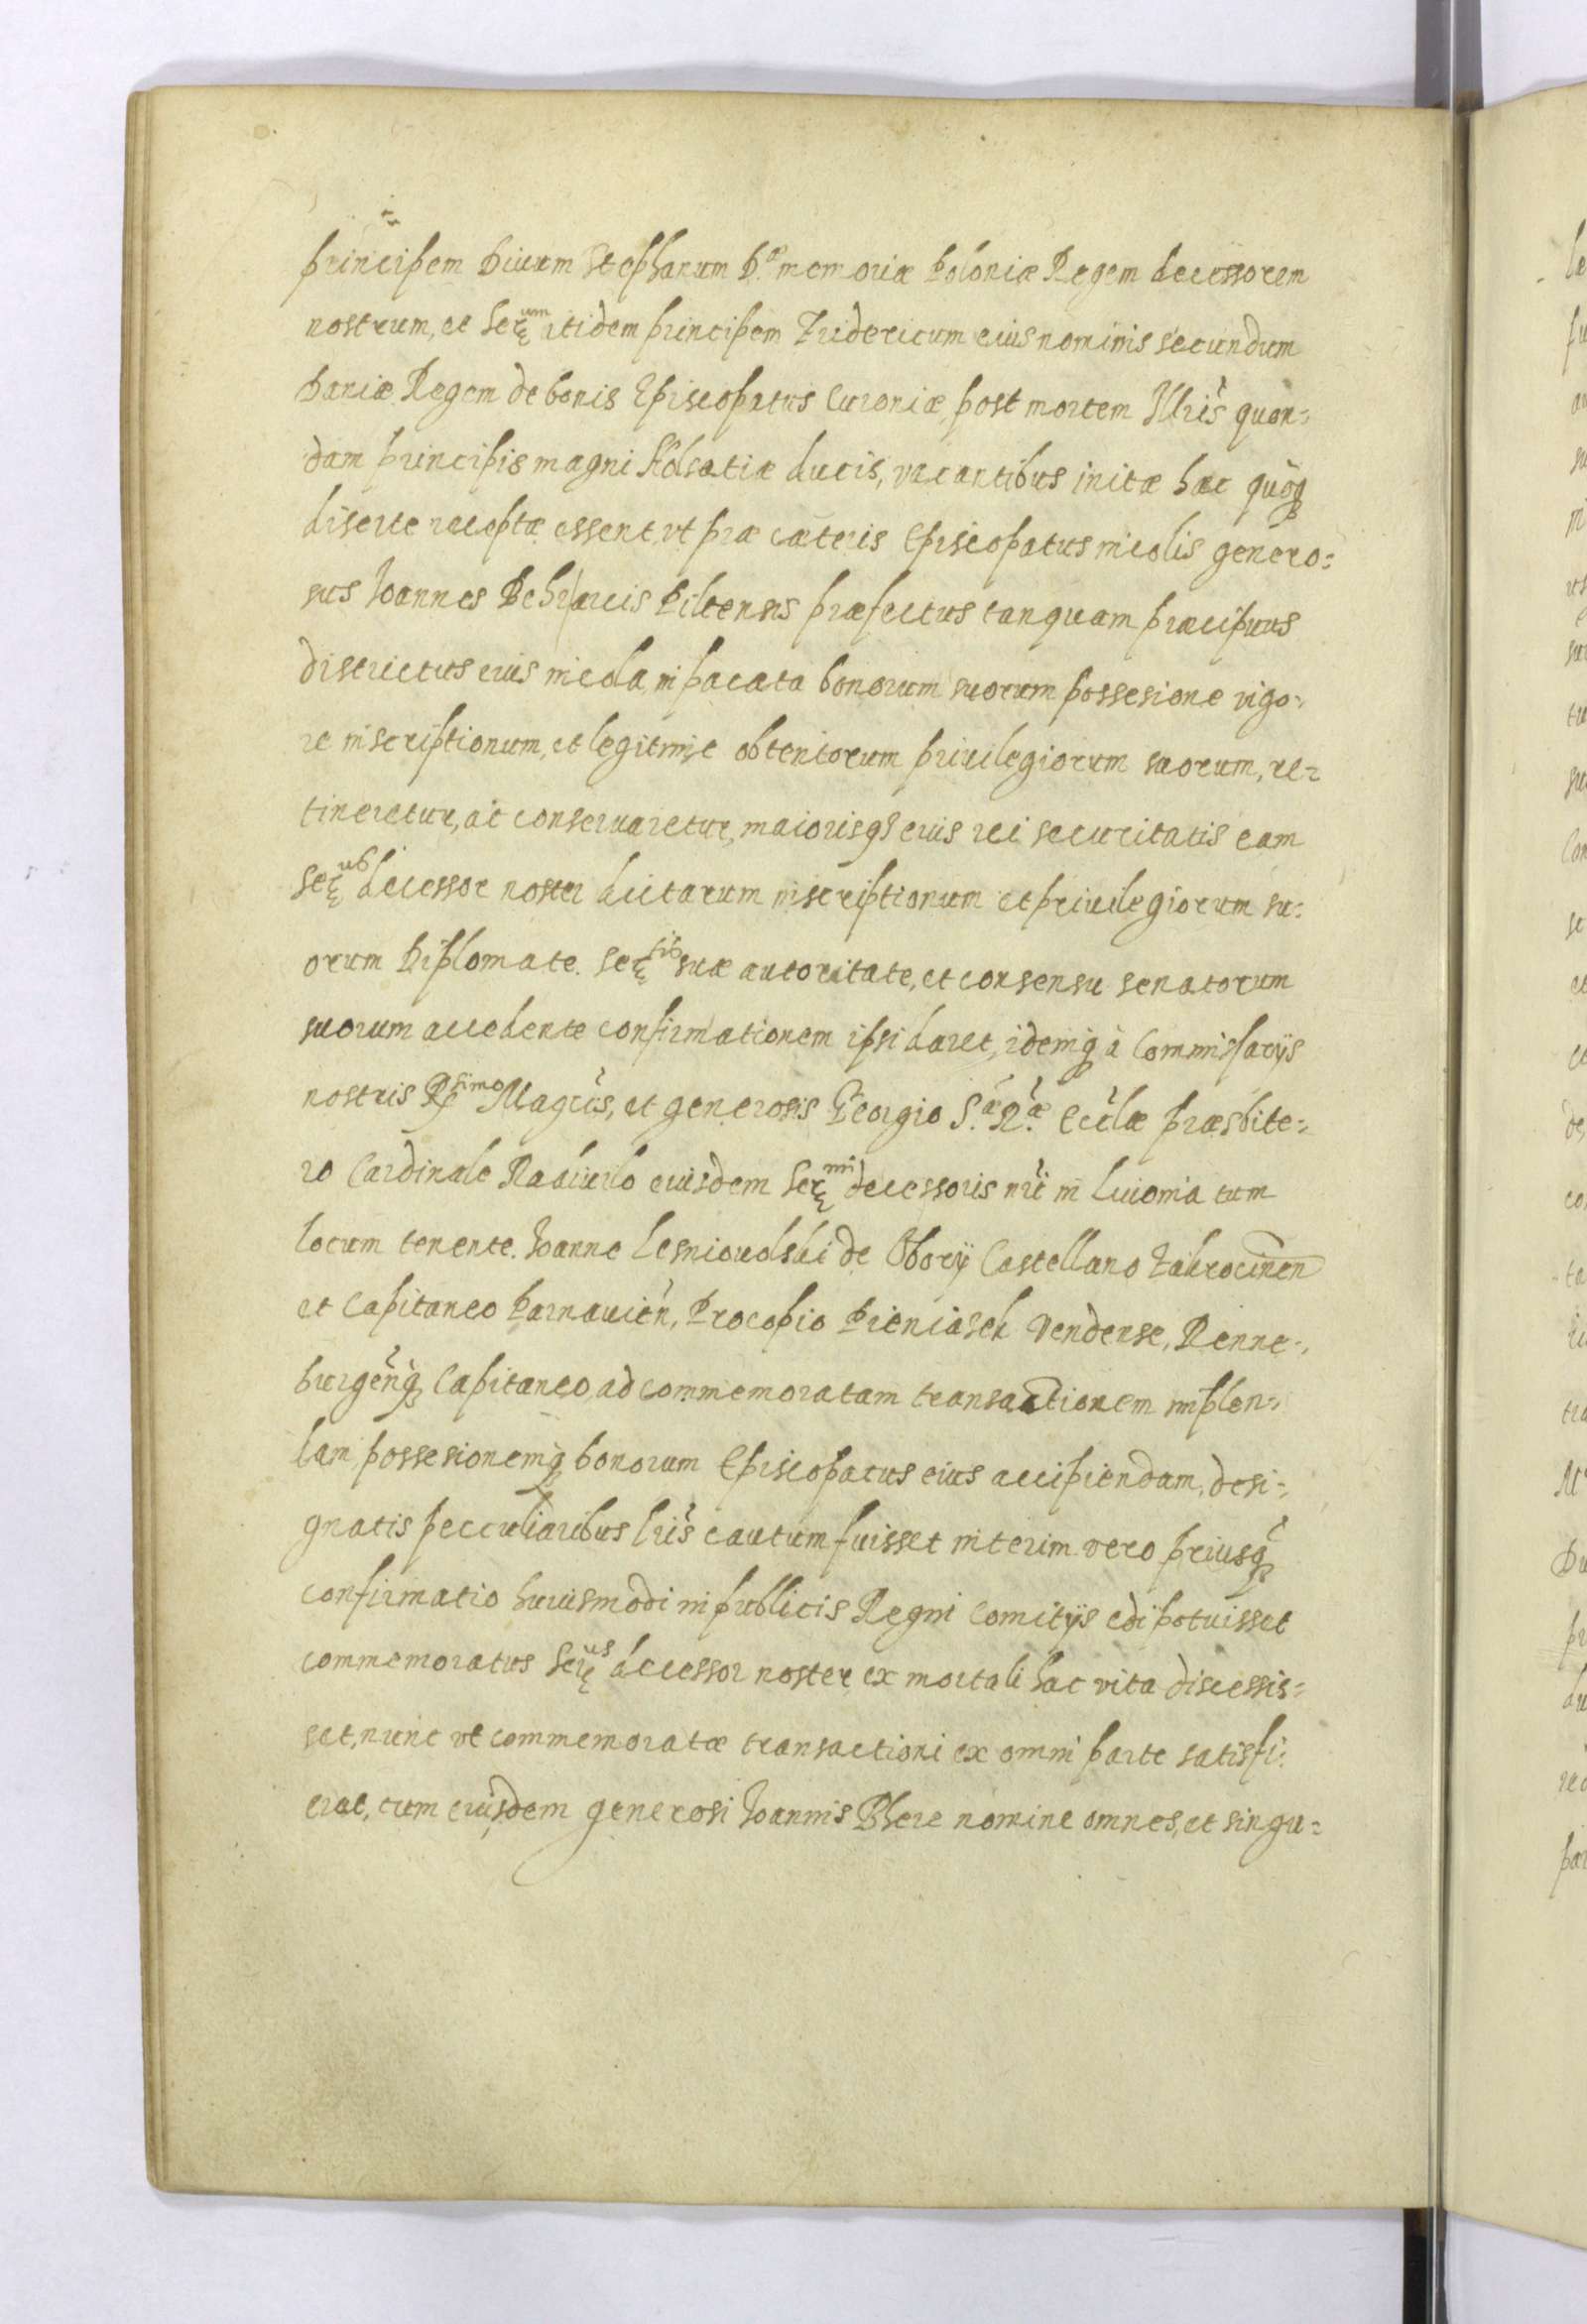 principem Diuum Stephanum D.æ memoriæ Poloniæ Regem decessorem
nostrum, et Ser.um itidem principem Fridericum eius nominis secundum
Daniæ Regem de bonis Episcopatus Curoniæ, post mortem Illris quon=
dam principis magni Holsatiæ ducis, vacantibus initæ hac quoq
diserte receptæ essent, vt præ cæteris Episcopatus incolis genero=
sus Ioannes Behr arcis Piltensis præfectus tanquam præcipuus
districtus eius incola, in pacata bonorum suorum possesione vigo=
re inscriptionum, et legitime obtentorum priuilegiorum suorum, re=
tineretur, ac conseruaretur, maiorisqs eius rei securitatis eam
Ser.us decessor noster dictarum inscriptionum et priuilegiorum su=
orum Diplomate. Ser.tis suæ autoritate, et consensu senatorum
suorum accedente confirmationem ipsi daret, idemq à Commissarijs
nostris R.simo Magcis, et generosis Georgio S.æ R.æ Ecclæ præsbite=
ro Cardinale Radiuilo eiusdem Ser.mi decessoris nri in Liuonia tum
locum tenente. Ioanne Lesniouolski de Obory Castellano Zakrocimen
et Capitaneo Parnauien, Procopio Pieniasek Vendense, Renne=
burgenq Capitaneo, ad commemoratam transactionem implen=
dam, possesionemq bonorum Episcopatus eius accipiendam, desi=
gnatis pecculiaribus lris cautum fuisset interim vero priusq
confirmatio huiusmodi in publicis Regni Comitijs edi potuisset
commemoratus Ser.us decessor noster, ex mortali hac vita discessis=
set, nunc vt commemoratæ transactioni ex omni parte satisfi=
erat, cum eiusdem generosi Ioannis Bhere nomine omnes, et singu=